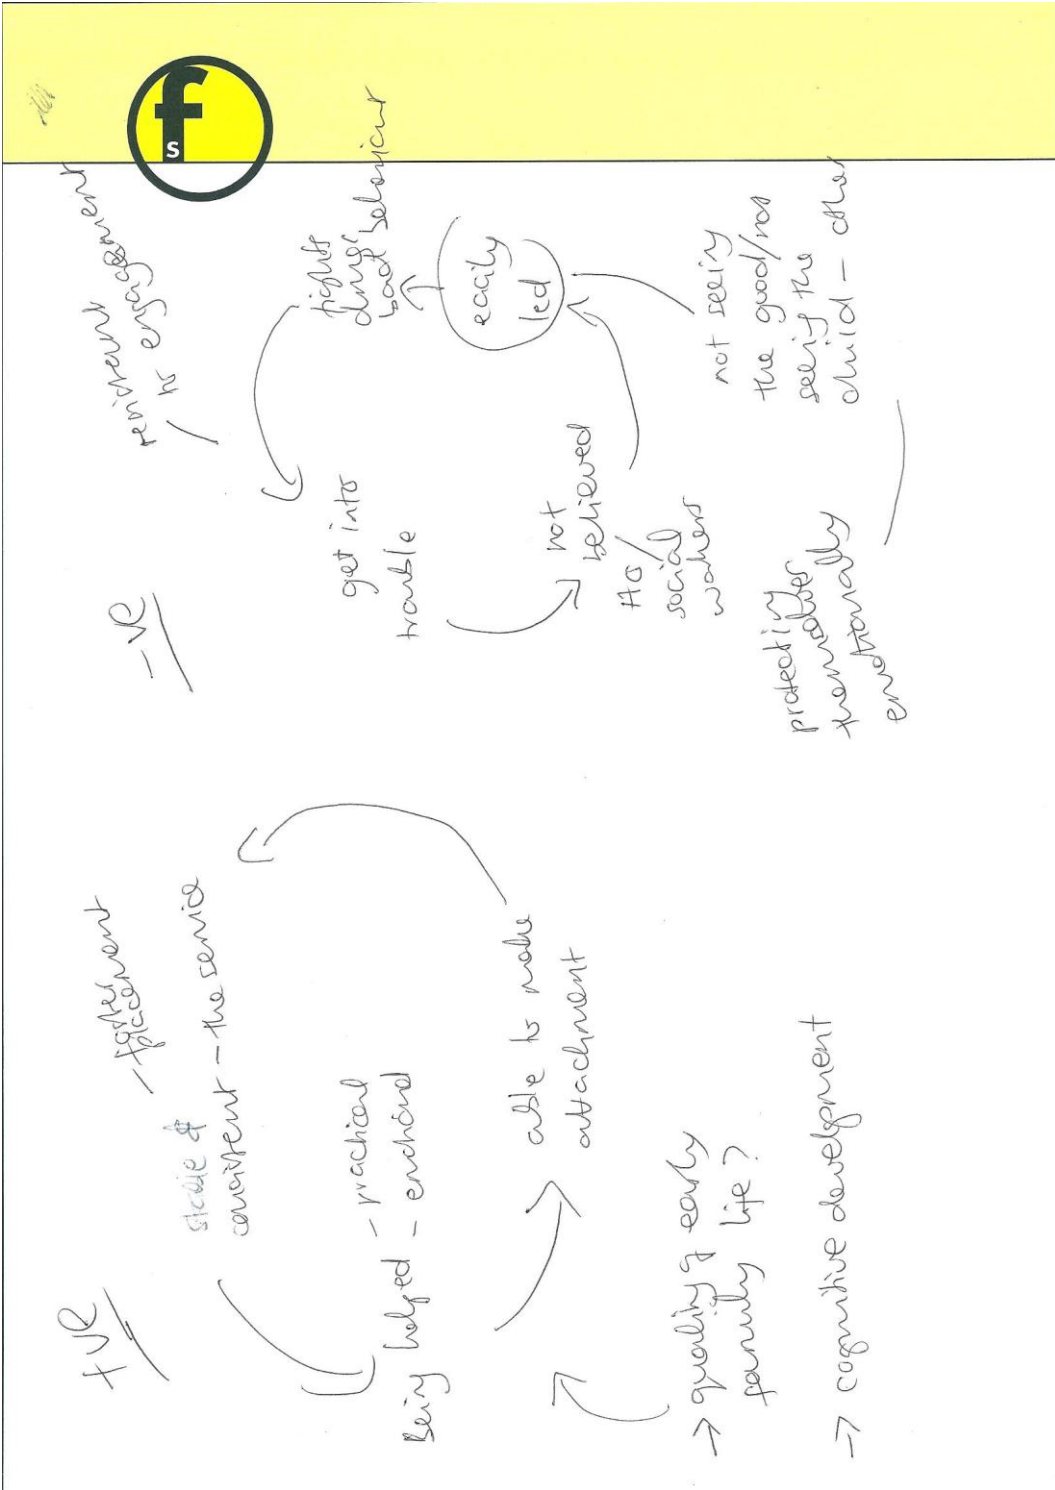 fs
+ve
stable &
consistent - the service
- foster
placement
Being helped - practical
- emotional
able to make
attachment
→ quality of early
family life?
→ cognitive development
-ve
resistant
to engagement
fights
drugs
bad behaviour
easily
led
get into
trouble
not
believed
HO /
social
workers
not seeing
the good/not
seeing the
child - other
protecting
themselves
emotionally